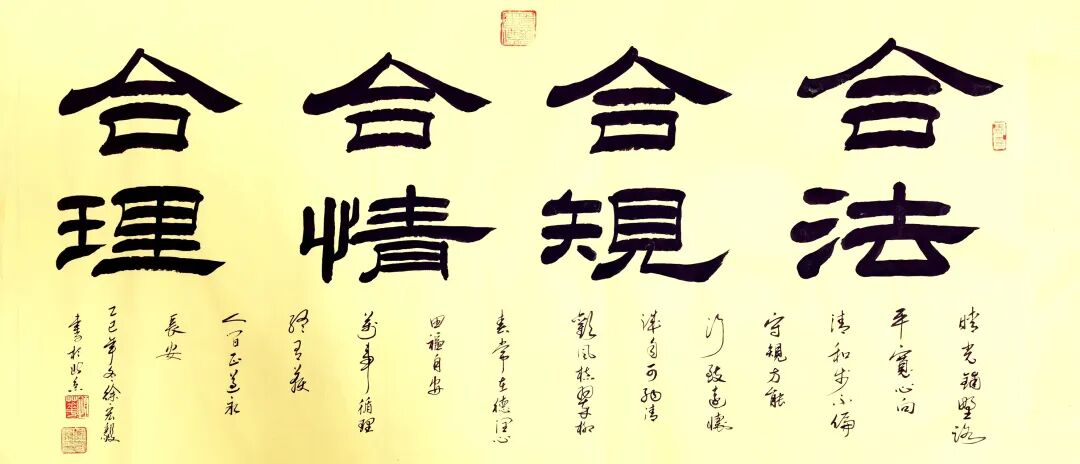 合法
合規
合情
合理
晴光鋪野路
平寬心向
清和步不偏
守規方能
行致遠懷
誠自可抱清
歡風拂翠柳
春常在德潤心
田福自安
萬事循理
終有獲
人間正道永
長安
乙巳年冬徐宏毅
書於北京